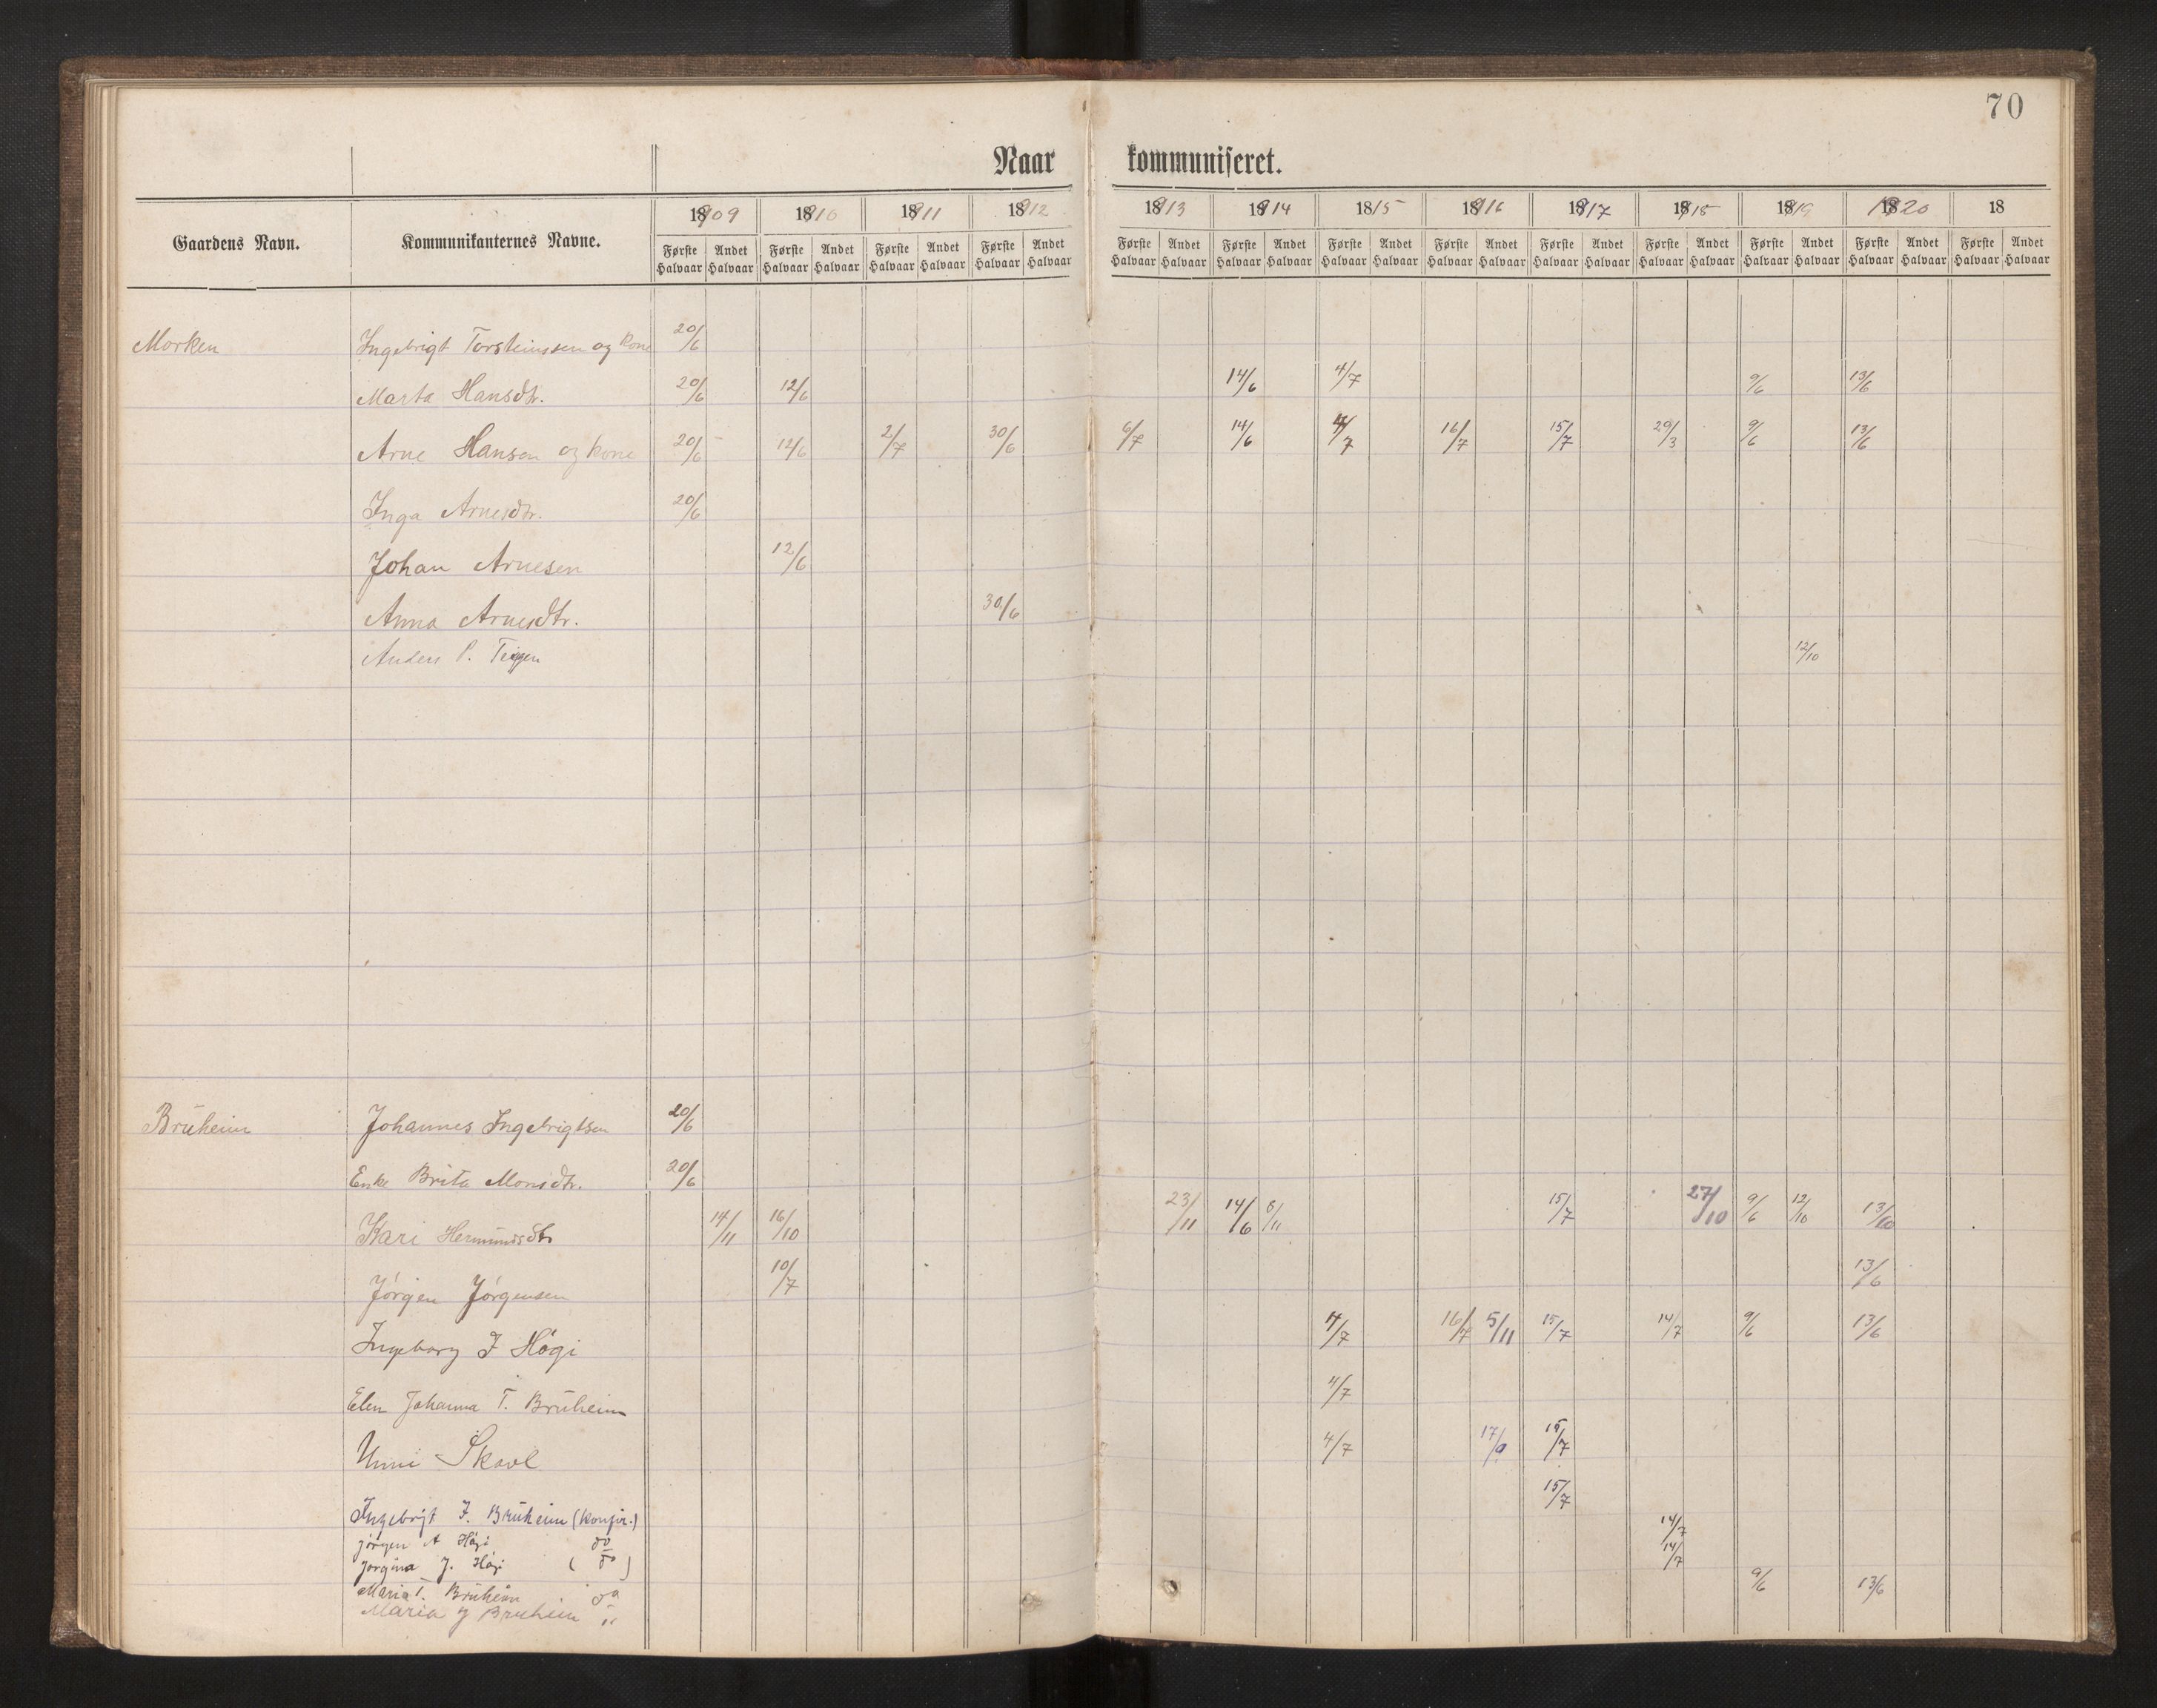 70
Naar kommuniseret.
1909 1910 1911 1912 1913 1914 1815 1916 1917 1918 1919 1920 18
Gaardens Navn. Kommunikanternes Navne. Første Halvaar Andet Halvaar Første Halvaar Andet Halvaar Første Halvaar Andet Halvaar Første Halvaar Andet Halvaar Første Halvaar Andet Halvaar Første Halvaar Andet Halvaar Første Halvaar Andet Halvaar Første Halvaar Andet Halvaar Første Halvaar Andet Halvaar Første Halvaar Andet Halvaar Første Halvaar Andet Halvaar Første Halvaar Andet Halvaar Første Halvaar Andet Halvaar
Morken Ingebrigt Torsteinssen og kone 20/6
Marta Hansdtr. 20/6 12/6 14/6 4/7 9/6 13/6
Arne Hansen og kone 20/6 12/6 2/7 30/6 6/7 14/6 4/7 16/7 15/7 29/3 9/6 13/6
Inga Arnesdtr. 20/6
Johan Arnesen 12/6
Anna Arnesdtr. 30/6
Anders P. Teigen 12/10
Brüheim Johannes Ingebrigtsen 20/6
Enke Brita Monsdtr. 20/6
Kari Hermundsdtr 14/11 16/10 23/11 14/6 8/11 15/7 27/10 9/6 12/10 13/10
Jörgen Jörgensen 10/7 13/6
Ingeborg J Högi 4/7 16/7 5/11 15/7 14/7 9/6 13/6
Elen Johanna T. Brüheim 4/7
Unni Skovl 4/7 17/9 15/7
Ingebrigt J. Brüheim (konfir.) 15/7
jörgen A Högi do 14/7
Jorgina J. Högi ( do ) 14/7
Maria T. Brüheim do 9/6 13/6
Maria J Bruheim "